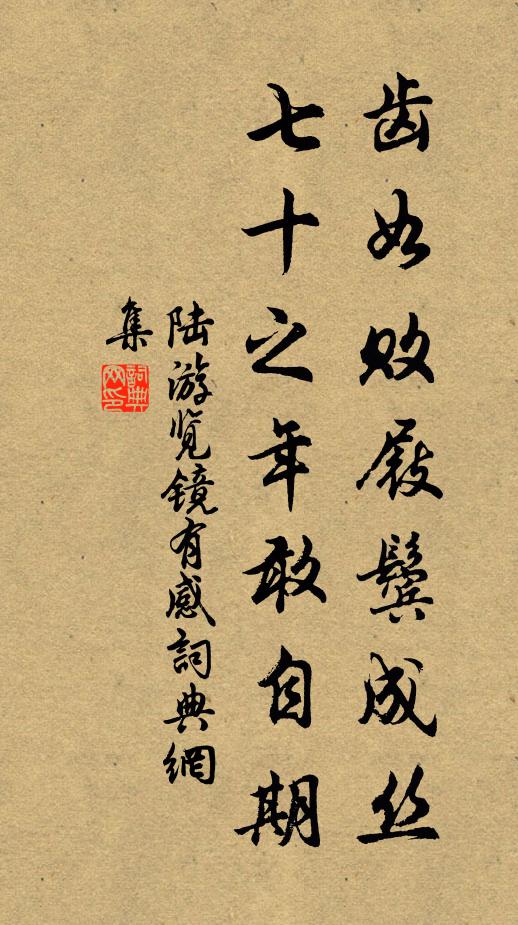 齿如败屐鬓成丝
七十之年敢自期
陆游览镜有感詞典網
集
詞典网印